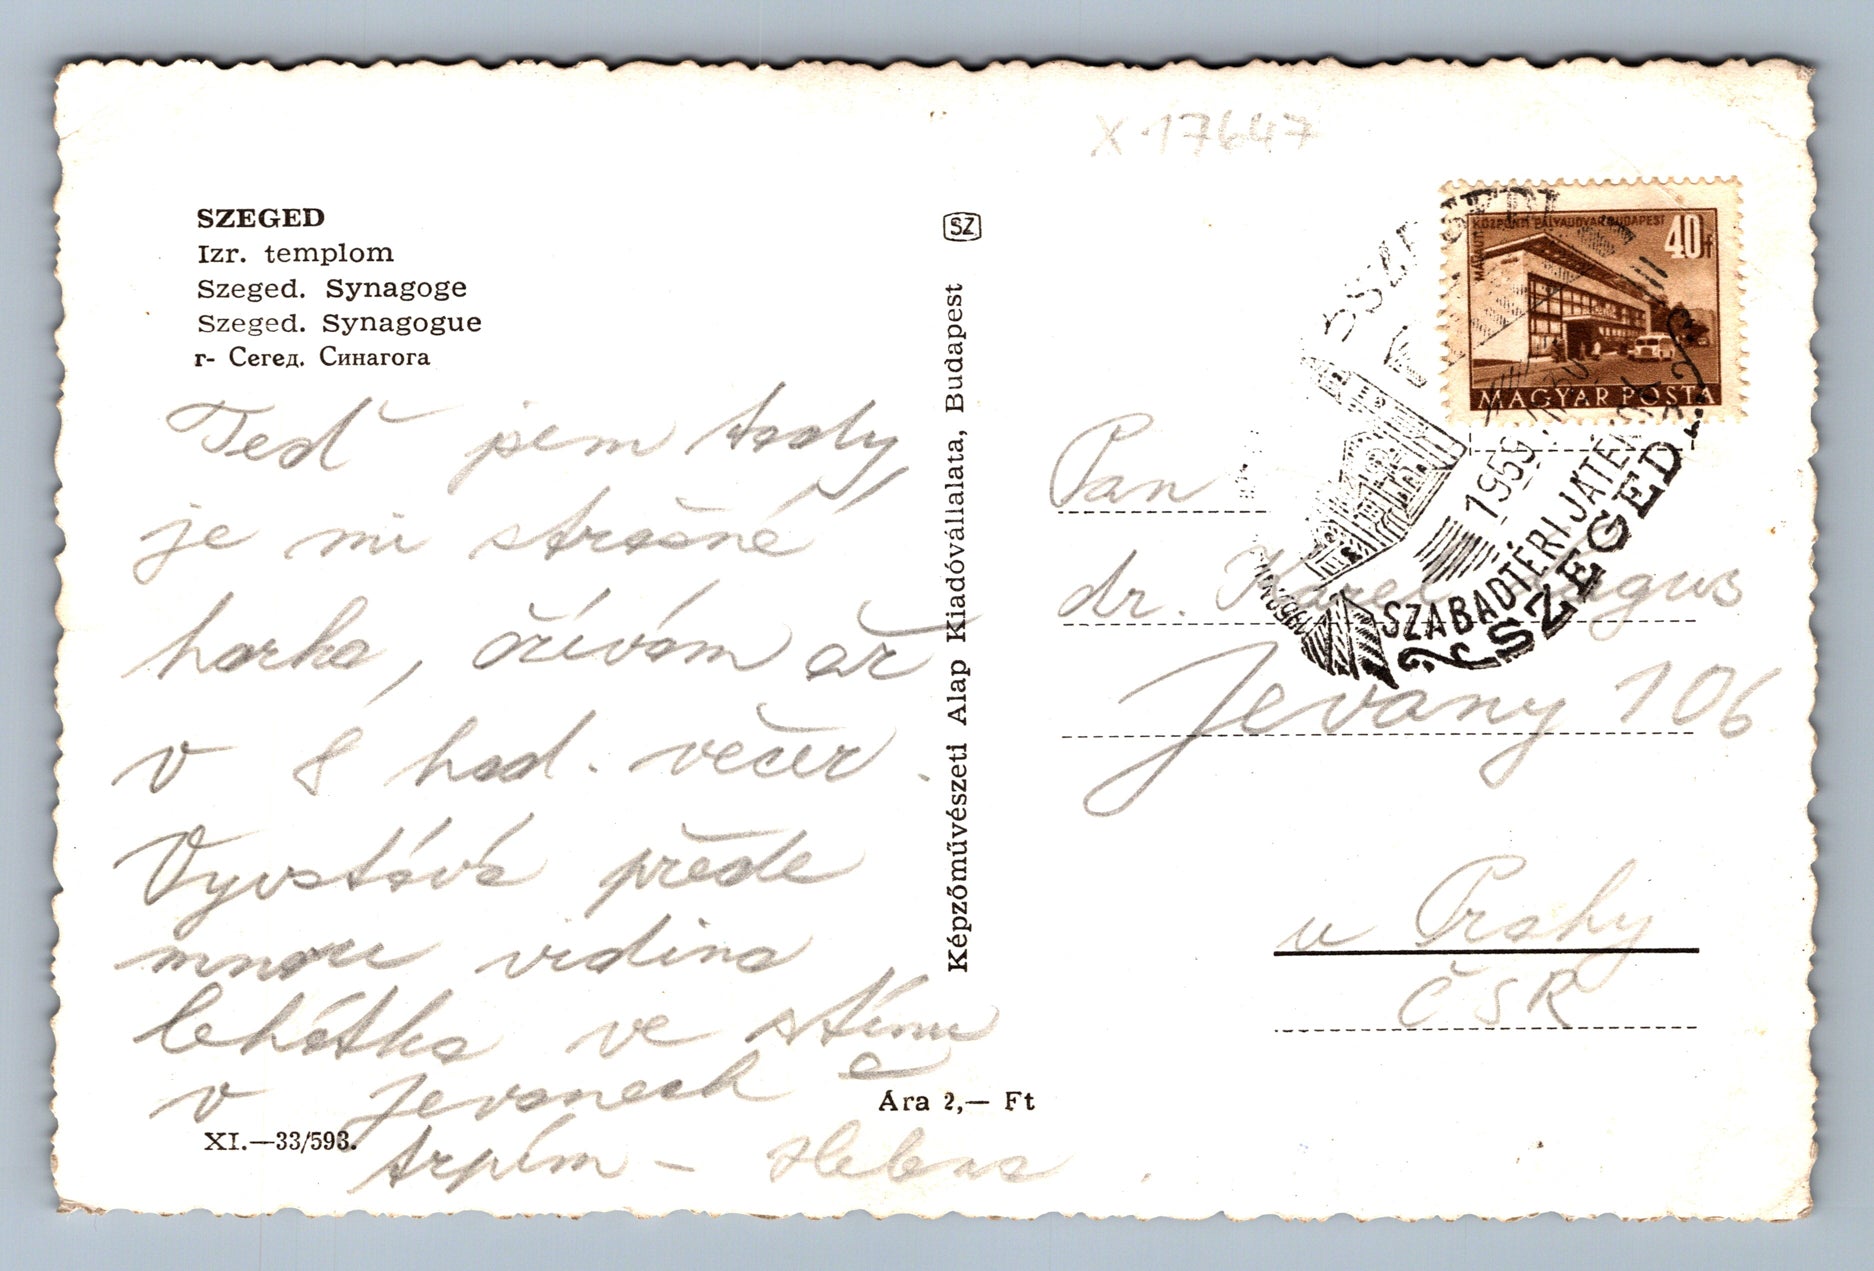 X 17647
SZEGED
Izr. templom
Szeged. Synagoge
Szeged. Synagogue
г- Сегед. Синагога
Teď jsem tady
je mi strašně
horko, ožívám až
v 8 hod. večer.
Vyvstává přede
mnou vidina
lehátka ve stínu
v Jevanech a
trpím - Helena.
XI.—33/593.
Ára 2,— Ft
SZ
Képzőművészeti Alap Kiadóvállalata, Budapest
KÖZPONTI PÁLYAUDVAR BUDAPEST
40f
MAGYAR POSTA
1959
SZABADTÉRI JÁTÉK
SZEGED
Pan
dr. Karel
Jevany 106
u Prahy
ČSR